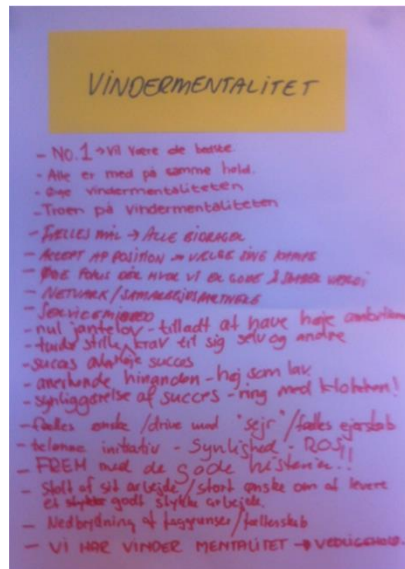 VINDERMENTALITET
- NO.1 → Vil være de bedste.
- Alle er med på samme hold.
- Øge vindermentaliteten
- Troen på vindermentaliteten
- FÆLLES MÅL → ALLE BIDRAGER
- ACCEPT AF POSITION → VÆLGE SINE KAMPE
- ØGE FOKUS DÉR HVOR VI ER GODE & SKABER VÆRDI
- NETVÆRK/SAMARBEJDSPARTNERE
- SERVICEMINDED
- nul jantelov - tilladt at have høje ambitioner
- turde stille krav til sig selv og andre
- succes avler succes
- anerkende hinanden - høj som lav
- synliggørelse af succes - ring med klokken!
- fælles ønske /drive mod "sejr" /fælles ejerskab
- initiativ - Synlighed - ROS!!
- FREM med de gode historier!!
- Stolt af sit arbejde / stort ønske om at levere
et stykke godt stykke arbejde.
- Nedbrydning af /fællesskab
- VI HAR VINDER MENTALITET → VEDLIGEHOLD.